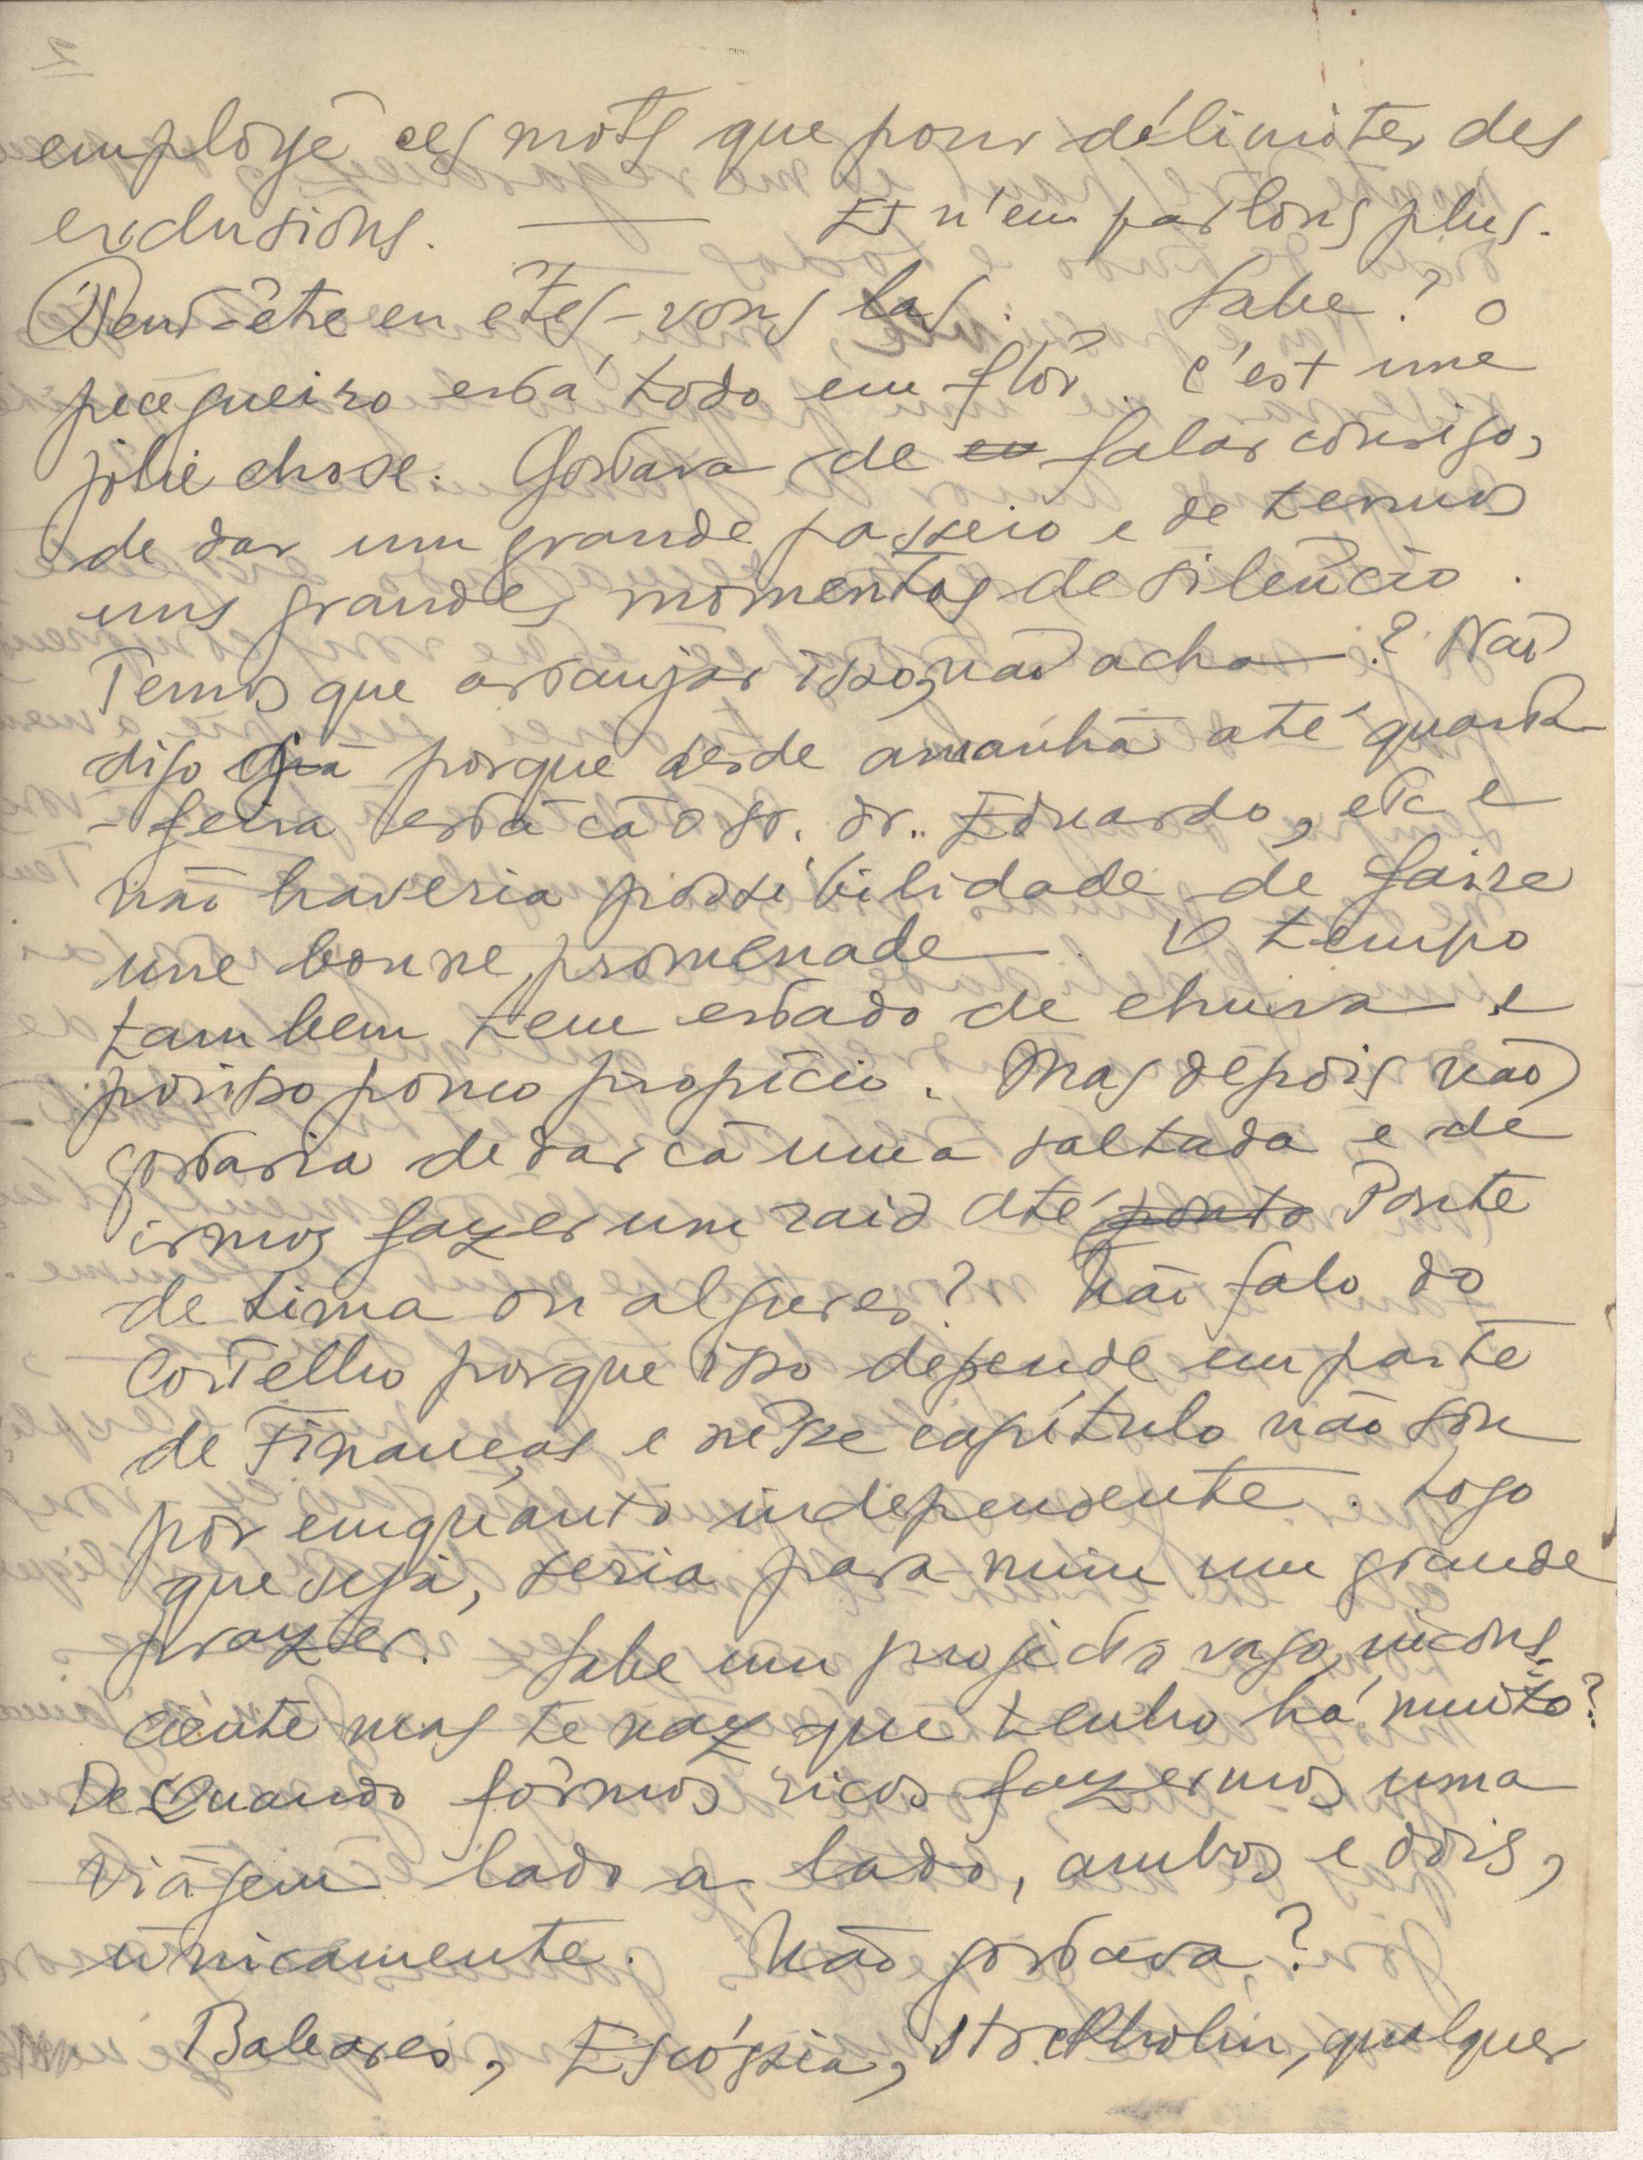 employé ces mots que pour délimiter des
exclusions. ——— Et n'en parlons plus.
Peut-être en êtes-vous las. Sabe? o
pecegueiro está todo em flôr. C'est une
jolie chose. Gostava de eu falar consigo,
de dar um grande passeio e de termos
uns grandes momentos de silêncio.
Temos que arranjar isso, não acha? Não
digo já porque desde amanhã até quarta
-feira está cá o sr. dr. Eduardo, etc e
não haveria possibilidade de faire
une bonne promenade. O tempo
tambem tem estado de chuva e
porisso pouco propício. Mas depois não
gostaria de dar cá uma saltada e de
irmos fazer um raid até ponto Ponte
de Lima ou algures? Não falo do
Cortelho porque isso depende em parte
de Finanças e nêsse capítulo não sou
por emquanto independente. Logo
que seja, seria para mim um grande
prazer. Sabe um projecto vago, incons-
ciente mas tenaz que tenho há muito?
De Quando fôrmos ricos fazermos uma
viágem lado a lado, ambos e dois,
únicamente. Não gostava?
Baleares, Escóssia, Stockholm, qualquer